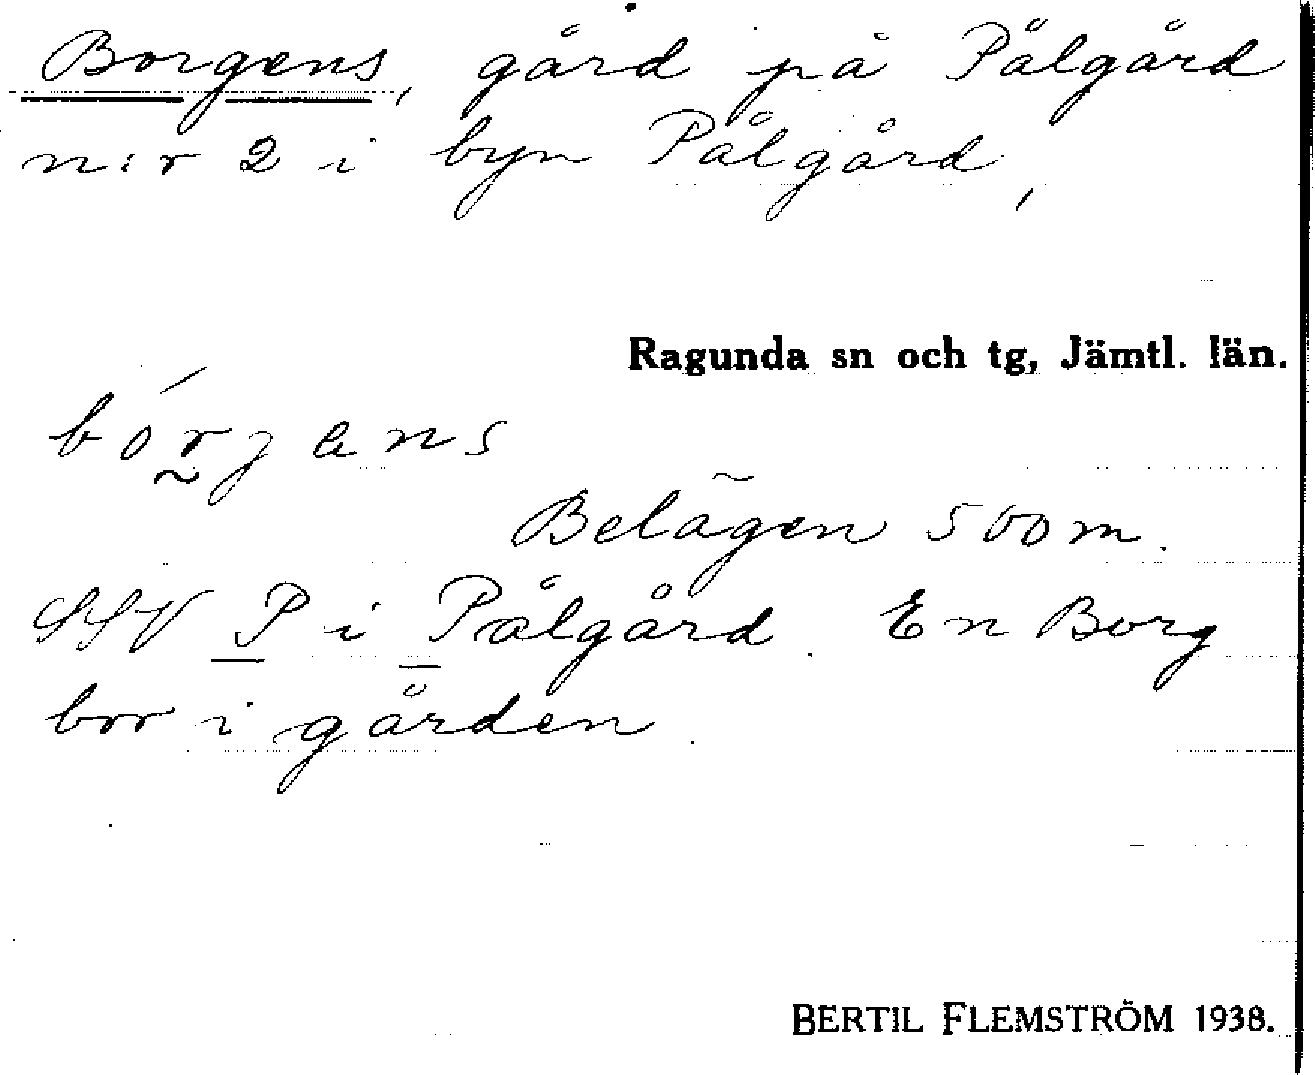 Borgens, gård på Pålgård
n:r 2 i byn Pålgård,
Ragunda sn och tg, Jämtl. län.
bórjans
Belägen 500 m.
SSV P i Pålgård. En Borg
bor i gården.
BERTIL FLEMSTRÖM 1938.